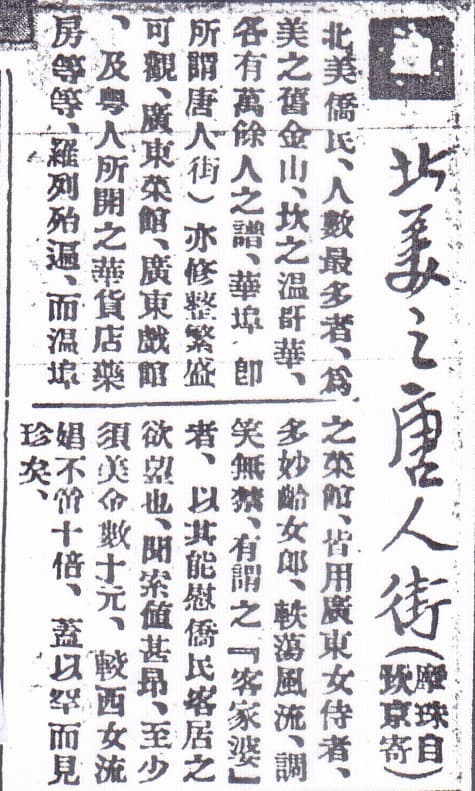 北美之唐人街
（珠自
坎京寄）
北美僑民、人數最多者、爲
美之舊金山、坎之温哥華、
各有萬餘人之譜、華埠 卽
所謂唐人街）亦修整繁盛
可觀、廣東菜館、廣東戲館
、及粵人所開之華貨店藥
房等等、羅列殆遍、而温埠
之菜館、皆用廣東女侍者、
多妙齡女郎、軼蕩風流、調
笑無禁、有謂之『客家婆』
者、以其能慰僑民客居之
欲望也、聞索値甚昂、至少
須美金數十元、較西女流
娼不啻十倍、蓋以罕而見
珍矣、